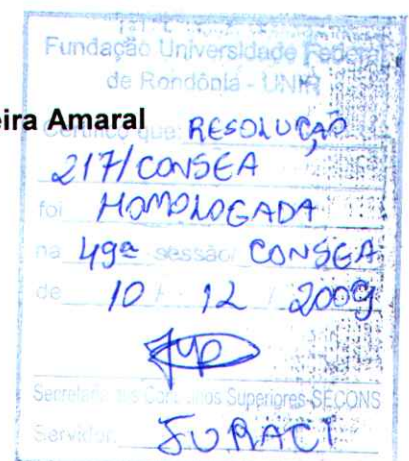 Fundação Universidade Federal
de Rondônia - UNIR
eira Amaral
Certifico que: RESOLUÇÃO
217/CONSEA
foi HOMOLOGADA
na 49ª sessão CONSEA
de 10 / 12 / 2009
Secretaria dos Conselhos Superiores-SECONS
Servidor: JURACI